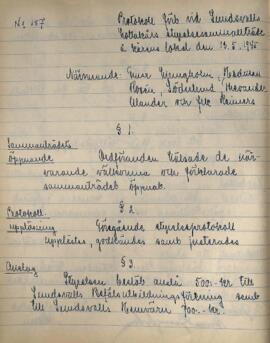 No 187
Protokoll förb vid Sundsvalls
Lottakårs styrelsesammanträde
å kårens lokal den 13.5.1945
Närvarande: Fruar Ljungholm,
Rosén, Söderlund,
Ulander och frk
§ 1.
Sammanträdets
öppnande
Ordföranden hälsade de när-
varande välkomna och förklarade
sammanträdet öppnat.
§ 2.
Protokoll
uppläsning
Föregående styrelseprotokoll
upplästes, godkändes samt justerades
§ 3.
Anslag
Styrelsen beslöt anslå 500:- kr till
Sundsvalls Befälsutbildningsförening samt
till Sundsvalls Hemvärn 700:- kr.